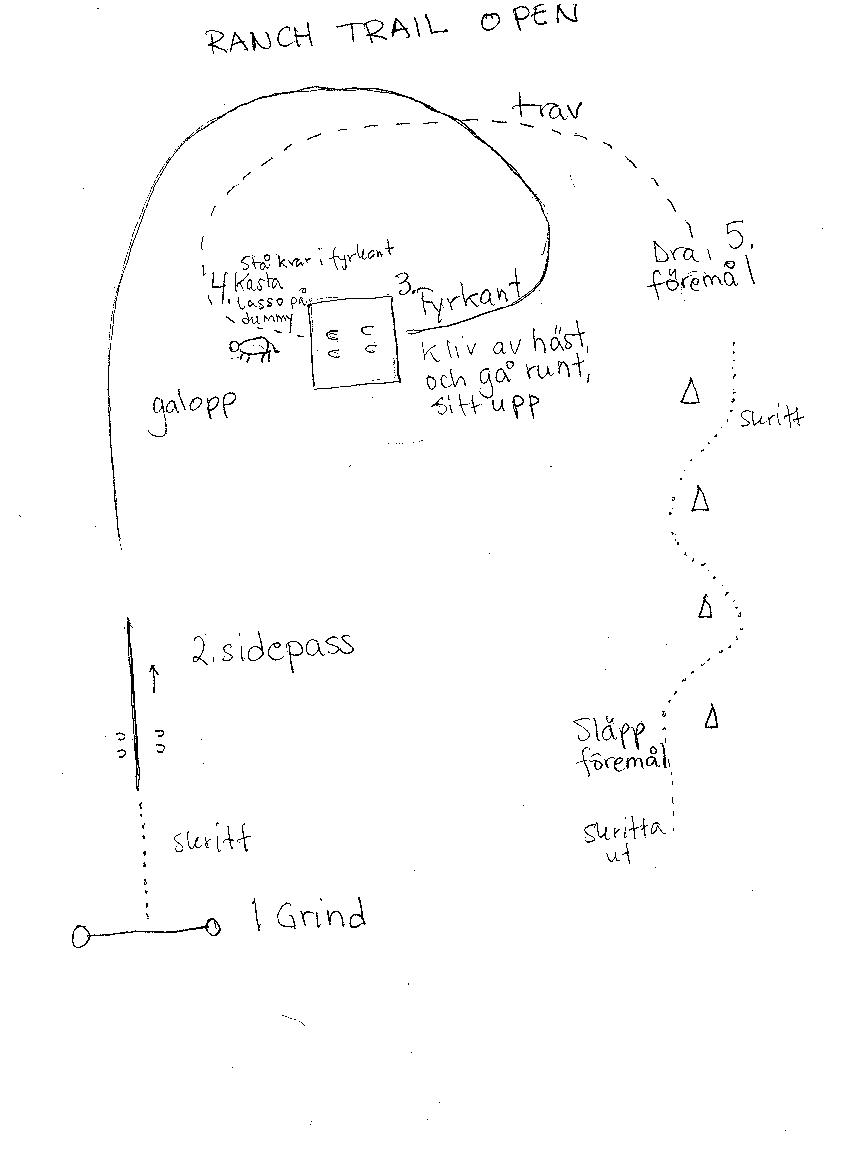 RANCH TRAIL OPEN
trav
Stå kvar i fyrkant
4. Kasta
Lasso på
dummy
3. Fyrkant
Kliv av häst,
och gå runt,
sitt upp
Dra 5.
föremål
galopp
skritt
2. sidepass
Släpp
föremål
skritt
skritta
ut
1 Grind